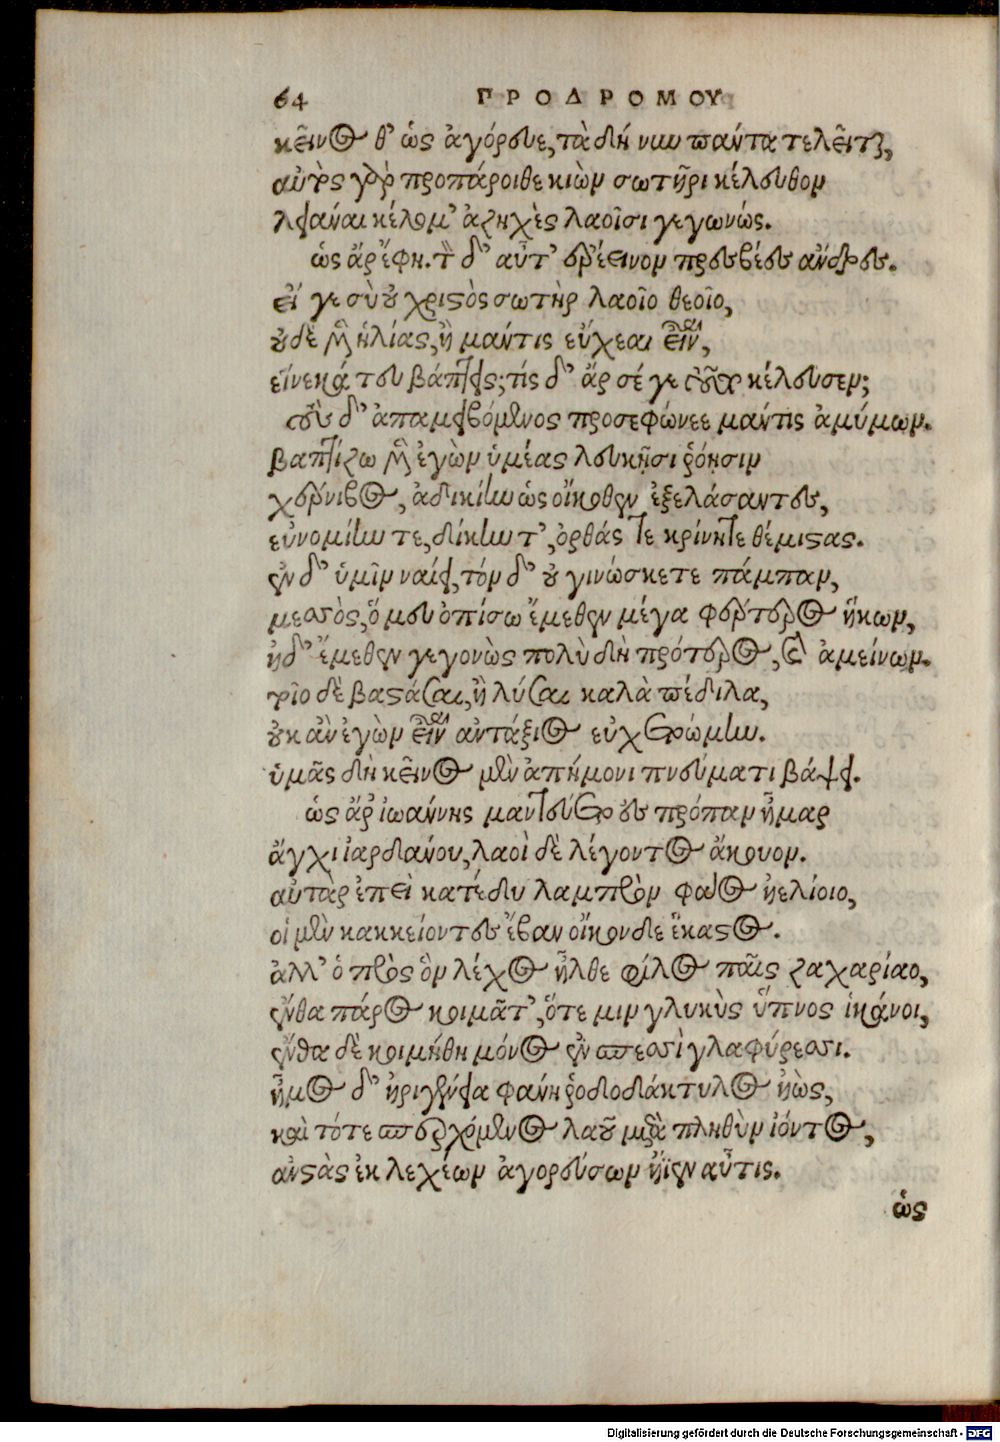 64 ΠΡΟΔΡΟΜΟΥ
κεῖνος θ' ὡς ἀγόρευε, τὰ δὴ νυν πάντα τελεῖται,
αὐτὸς γὰρ προπάροιθε κιὼν σωτῆρι κέλευθον
λειᾶναι κέλομ' ἀρηχὲς λαοῖσι γεγωνώς.
ὡς ἄρ' ἔφη. τὸν δ' αὖτ' ἐρέεινον πρεσβέες ἄνδρες.
εἴ γε σὺ οὐ χριστὸς σωτὴρ λαοῖο θεοῖο,
οὐδὲ μὴν ἠλίας, ἢ μάντις εὔχεαι εἶναι,
εἵνεκά τευ βάπτεις; τίς δ' ἄρ σέ γε τοῦτο κέλευσεν;
τοὺς δ' ἀπαμειβόμενος προσεφώνεε μάντις ἀμύμων.
βαπτίζω μὲν ἐγὼν ὑμέας λευκῇσι ῥόῃσιν
χέρνιβος, ἀδικίην ὡς οἴκοθεν ἐξελάσαντες,
εὐνομίην τε, δίκην τ', ὀρθάς τε κρίνητε θέμιστας.
ἐν δ' ὑμῖν ναίει, τόν δ' οὐ γινώσκετε πάμπαν,
μεσσὸς, ὅ μευ ὀπίσω ἔμεθεν μέγα φέρτερος ἥκων,
ἠδ' ἔμεθεν γεγονὼς πολὺ δὴ πρότερος, καὶ ἀμείνων.
τοῖο δὲ βαστάσαι, ἢ λύσαι καλὰ πέδιλα,
οὐκ ἂν ἐγὼν εἶναι ἀντάξιος εὐχετοῴμην.
ὑμᾶς δὴ κεῖνος μὲν ἀπήμονι πνεύματι βάψει.
ὡς ἄρ' ἰωάννης μαντεύετο ἐς πρόπαν ἦμαρ
ἄγχι ἰαρδάνου, λαοὶ δὲ λέγοντος ἄκουον.
αὐτὰρ ἐπεὶ κατέδυ λαμπρὸν φάος ἠελίοιο,
οἱ μὲν κακκείοντες ἔβαν οἶκον δε ἕκαστος.
ἀλλ' ὁ πρὸς ὃν λέχος ἦλθε φίλος παῖς ζαχαρίαο,
ἔνθα πάρος κοιμᾶτ', ὅτε μιν γλυκὺς ὕπνος ἱκάνοι,
ἔνθα δὲ κοιμήθη μόνος ἐν σπέσσι γλαφύρεσσι.
ἦμος δ' ἠριγένεια φάνη ῥοδοδάκτυλος ἠὼς,
καὶ τότε σπερχόμενος λαοῦ μετὰ πληθὺν ἰόντος,
ἀνστὰς ἐκ λεχέων ἀγορεύσων ἤϊεν αὖτις.
ὡς
Digitalisierung gefördert durch die Deutsche Forschungsgemeinschaft - DFG